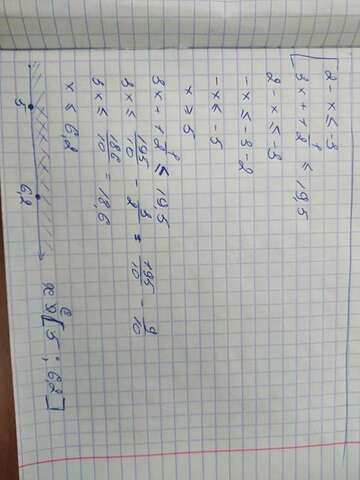 2 - x ≤ -3
3x + 1 1/2 ≤ 19,5
2 - x ≤ -3
-x ≤ -3 -2
-x ≤ -5
x ≥ 5
3x + 1 1/2 ≤ 19,5
3x ≤ 195/10 - 3/2 = 195/10 - 9/10
3x ≤ 186/10 = 18,6
x ≤ 6,2
5 6,2 x ∈ [5; 6,2]